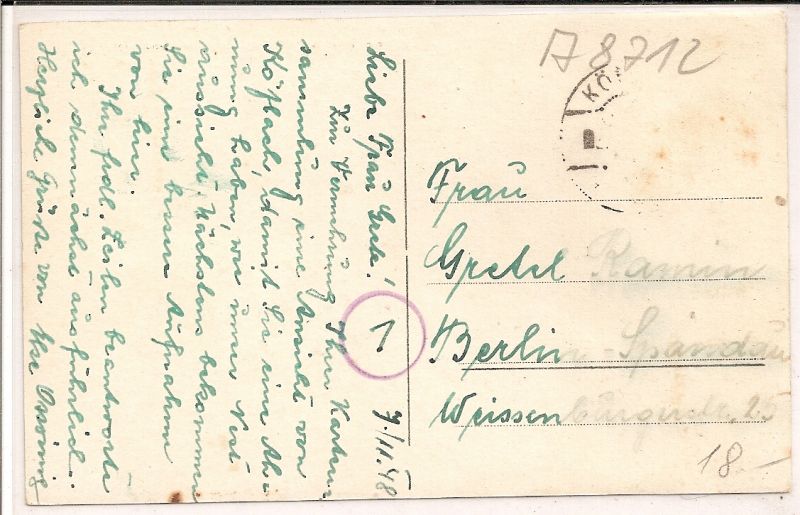 A8712
KÖ
Liebe Frau Grete!
Zur Vermehrung Ihrer Karten-
sammlung eine Ansicht von
Köflach, damit Sie eine Ah-
nung haben, wie unser Nest
aussieht. Nächstens bekommen
Sie eine bessere Aufnahme
von hier.
Ihr frdl. Zeilen beantworte
ich demnächst ausführlich.
Herzliche Grüße von
9./11.48
1.
Frau
Gretel Kamin
Berlin-Spandau
Weissenburgerstr. 25
18.-